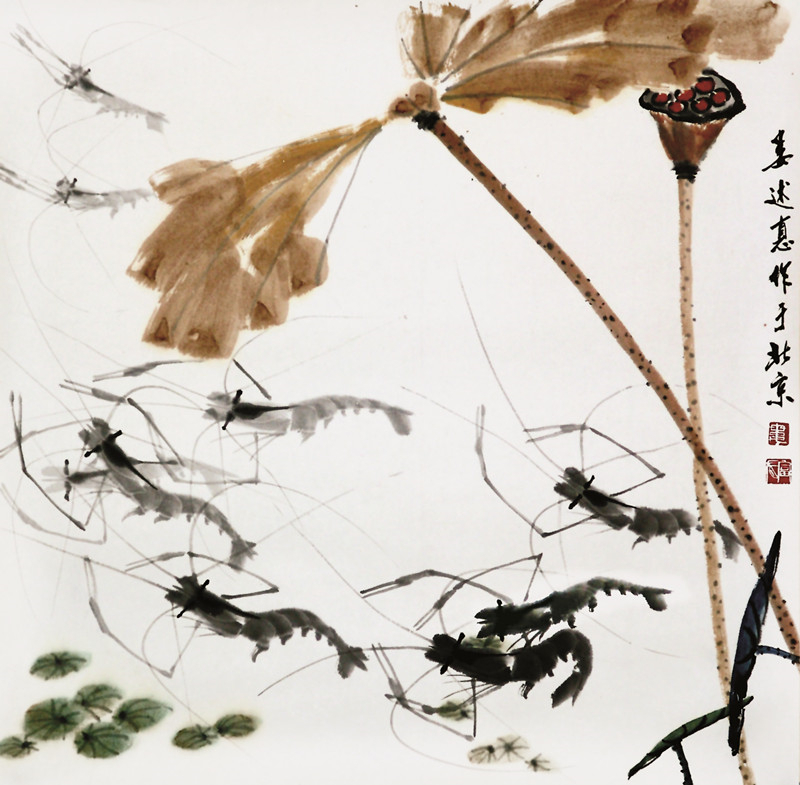 娄述惠作于北京